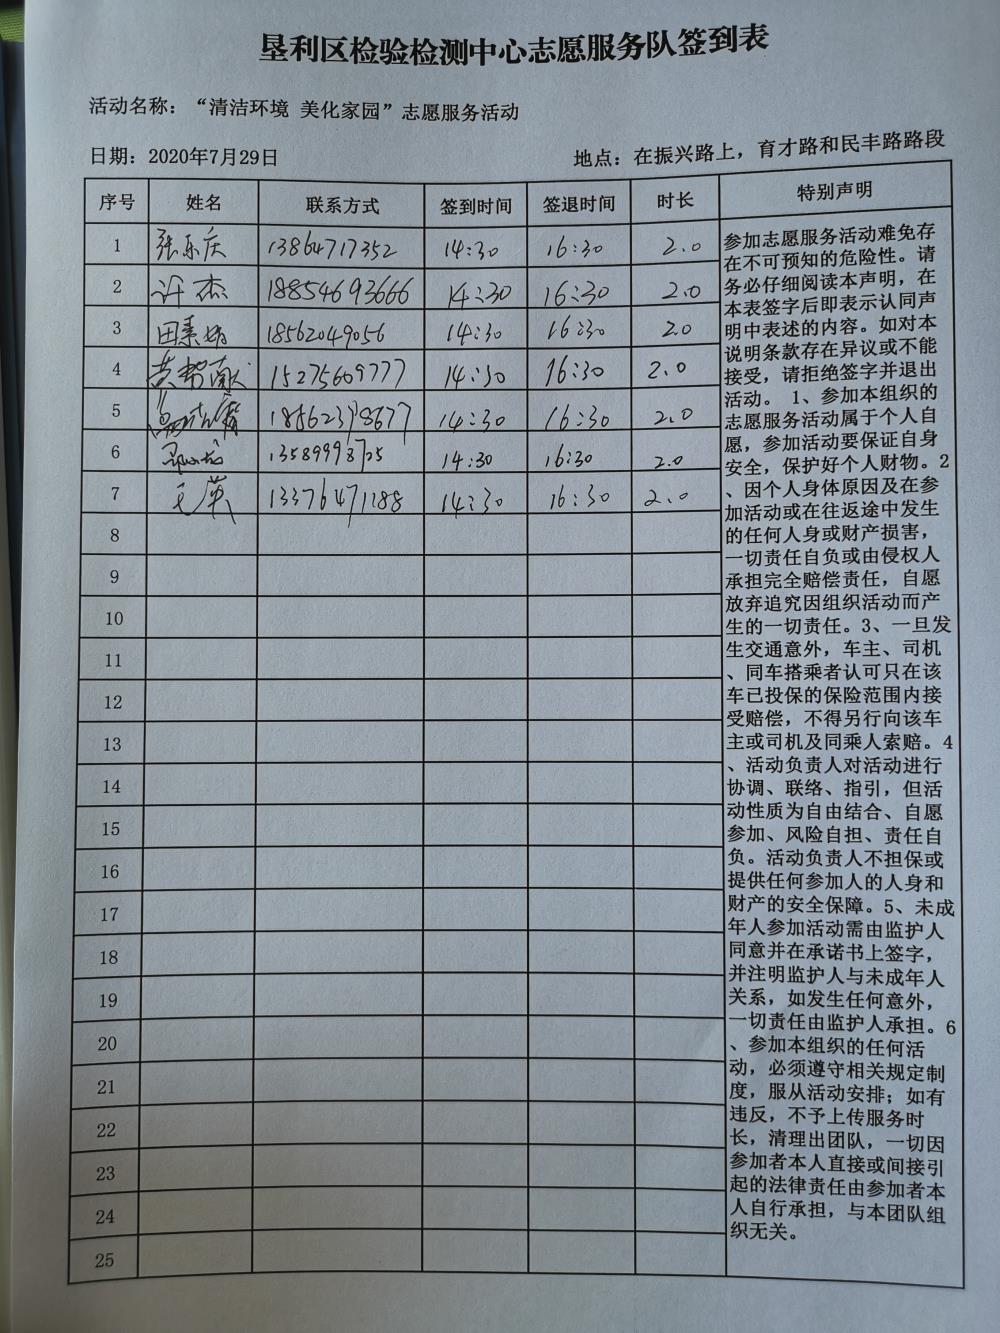 垦利区检验检测中心志愿服务队签到表
活动名称：“清洁环境 美化家园”志愿服务活动
日期：2020年7月29日 地点：在振兴路上，育才路和民丰路路段
序号 姓名 联系方式 签到时间 签退时间 时长 特别声明
1 张乐庆 13864717352 14:30 16:30 2.0
2 许杰 18854693666 14:30 16:30 2.0
3 18562049056 14:30 16:30 2.0
4 黄帮献 15275609777 14:30 16:30 2.0
5 14:30 16:30 2.0
6 14:30 16:30 2.0
7 王英 13376471188 14:30 16:30 2.0
8
9
10
11
12
13
14
15
16
17
18
19
20
21
22
23
24
25
参加志愿服务活动难免存
在不可预知的危险性。请
务必仔细阅读本声明，在
本表签字后即表示认同声
明中表述的内容。如对本
说明条款存在异议或不能
接受，请拒绝签字并退出
活动。 1、参加本组织的
志愿服务活动属于个人自
愿，参加活动要保证自身
安全，保护好个人财物。2
、因个人身体原因及在参
加活动或在往返途中发生
的任何人身或财产损害，
一切责任自负或由侵权人
承担完全赔偿责任，自愿
放弃追究因组织活动而产
生的一切责任。3、一旦发
生交通意外，车主、司机
、同车搭乘者认可只在该
车已投保的保险范围内接
受赔偿，不得另行向该车
主或司机及同乘人索赔。4
、活动负责人对活动进行
协调、联络、指引，但活
动性质为自由结合、自愿
参加、风险自担、责任自
负。活动负责人不担保或
提供任何参加人的人身和
财产的安全保障。5、未成
年人参加活动需由监护人
同意并在承诺书上签字，
并注明监护人与未成年人
关系，如发生任何意外，
一切责任由监护人承担。6
、参加本组织的任何活
动，必须遵守相关规定制
度，服从活动安排；如有
违反，不予上传服务时
长，清理出团队，一切因
参加者本人直接或间接引
起的法律责任由参加者本
人自行承担，与本团队组
织无关。